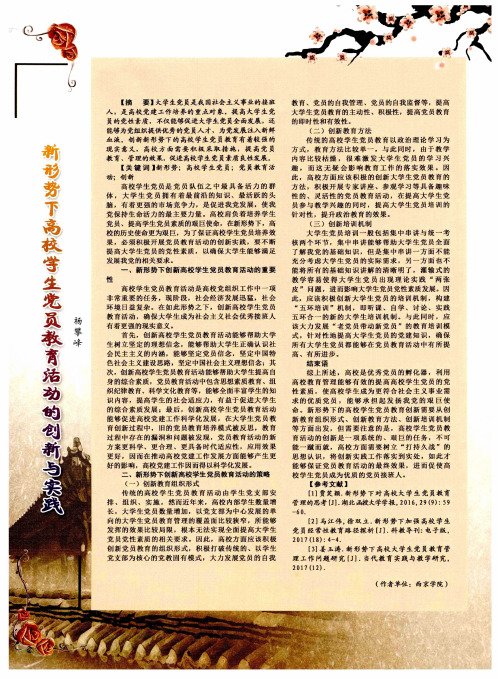 新形势下高校学生党员教育活动的创新与实践
杨攀峰
【摘　要】大学生党员是我国社会主义事业的接班
人，是高校党建工作培养的重点对象。提高大学生党
员的党性素质，不仅能够促进大学生党员全面发展，还
能够为党组织提供优秀的党员人才，为党发展注入新鲜
血液。创新新形势下的高校学生党员教育有着较强的
现实意义。高校方面需要积极采取措施，提高党员
教育、管理的效果，促进高校学生党员素质良性发展。
【关键词】新形势；高校学生党员；党员教育活
动；创新
高校学生党员是党员队伍之中最具备活力的群
体，大学生党员拥有着最前沿的知识、最活跃的头
脑，有着更强的市场竞争力，是促进我党发展，使我
党保持生命活力的最主要力量。高校肩负着培养学生
党员、提高学生党员素质的艰巨使命，在新形势下，高
校的历史使命更为艰巨，为了保证高校学生党员培养效
果，必须积极开展党员教育活动的创新实践，要不断
提高大学生党员的党性素质，以确保大学生能够满足
发展我党的相关要求。
一、新形势下创新高校学生党员教育活动的重要
性
高校学生党员教育活动是高校党组织工作中一项
非常重要的任务，现阶段，社会经济发展迅猛，社会
环境日益复杂，在如此形势之下，创新高校学生党员
教育活动，确保大学生成为社会主义社会优秀接班人
有着更强的现实意义。
首先，创新高校学生党员教育活动能够帮助大学
生树立坚定的理想信念，能够帮助大学生正确认识社
会民主主义的内涵，能够坚定党员信念，坚定中国特
色社会主义建设思路，坚定中国社会主义理想信念；其
次，创新高校学生党员教育活动能够帮助大学生提高自
身的综合素质，党员教育活动中包含思想素质教育、组
织纪律教育、科学文化教育等，能够全面丰富学生的知
识内容，提高学生的社会适应力，有益于促进大学生
的综合素质发展；最后，创新高校学生党员教育活动
能够促进高校党建工作科学化发展，在大学生党员教
育创新过程中，旧的党员教育培养模式被反思，教育
过程中存在的漏洞和问题被发现，党员教育活动的新
方案更科学、更合理、更具备时代适应性，应用效果
更好，因而在推动高校党建工作发展方面能够产生更
好的影响，高校党建工作因而得以科学化发展。
二、新形势下创新高校学生党员教育活动的策略
（一）创新教育组织形式
传统的高校学生党员教育活动由学生党支部安
排、组织、实施，然而近年来，高校内部学生数量增
长，大学生党员数量增加，以党支部为中心发展的单
向的大学生党员教育管理的覆盖面比较狭窄，所能够
发挥的效果比较局限，根本无法实现全面提高大学生
党员党性素质的相关要求。因此，高校方面应该积极
创新党员教育的组织形式，积极打破传统的、以学生
党支部为核心的党教固有模式，大力发展党员的自我
教育、党员的自我管理、党员的自我监督等，提高
大学生党员教育的主动性、积极性，提高党员教育
的即时性和有效性。
（二）创新教育方法
传统的高校学生党员教育以政治理论学习为
方式，教育方法比较单一，与此同时，由于教学
内容比较枯燥，很难激发大学生党员的学习兴
趣，而这无疑会影响教育工作的落实效果。因
此，高校方面应该积极的创新大学生党员教育的
方法，积极开展专家讲座、参观学习等具备趣味
性的、灵活性的党员教育活动，在提高大学生党
员参与教学兴趣的同时，提高大学生党员培训的
针对性，提升政治教育的效果。
（三）创新培训机制
大学生党员培训一般包括集中串讲与统一考
核两个环节，集中串讲能够帮助大学生党员全面
了解我党的基础知识，但是集中串讲一方面不能
充分考虑大学生党员的实际需求，另一方面也不
能将所有的基础知识讲解的清晰明了，灌输式的
教学容易使得大学生党员出现理论实践“两张
皮”问题，进而影响大学生党员党性素质发展。因
此，应该积极创新大学生党员的培训机制，构建
“五环培训”机制，即听课、自学、讨论、实践
五环合一的新的大学生培训机制。与此同时，应
该大力发展“老党员带动新党员”的教育培训模
式，针对性地提高大学生党员的党建知识，确保
所有大学生党员都能够在党员教育活动中有所提
高、有所进步。
结束语
综上所述，高校是优秀党员的孵化器，利用
高校教育管理能够有效的提高高校学生党员的党
性素质，使高校学生成为更符合社会主义事业需
求的优质党员，能够承担起发扬我党的艰巨使
命。新形势下的高校学生党员教育创新需要从创
新教育组织形式、创新教育方法、创新培训机制
等方面出发，但需要注意的是，高校学生党员教
育活动的创新是一项系统的、艰巨的任务，不可
能一蹴而就，高校方面需要树立“打持久战”的
思想认识，将创新实践工作落实到实处，如此才
能够保证党员教育活动的最终效果，进而促使高
校学生党员成为优质的党员接班人。
【参考文献】
[1]曹芝融.新形势下对高校大学生党员教育
管理的思考[J].湖北函授大学学报,2016,29(9):59
-60.
[2]马江伟,徐双立.新形势下加强高校学生
党员经常性教育路径探析[J].科教导刊:电子版,
2017(18):4-4.
[3]姜玉涛.新形势下高校大学生党员教育管
理工作问题研究[J].当代教育实践与教学研究,
2017(12).
（作者单位：西京学院）